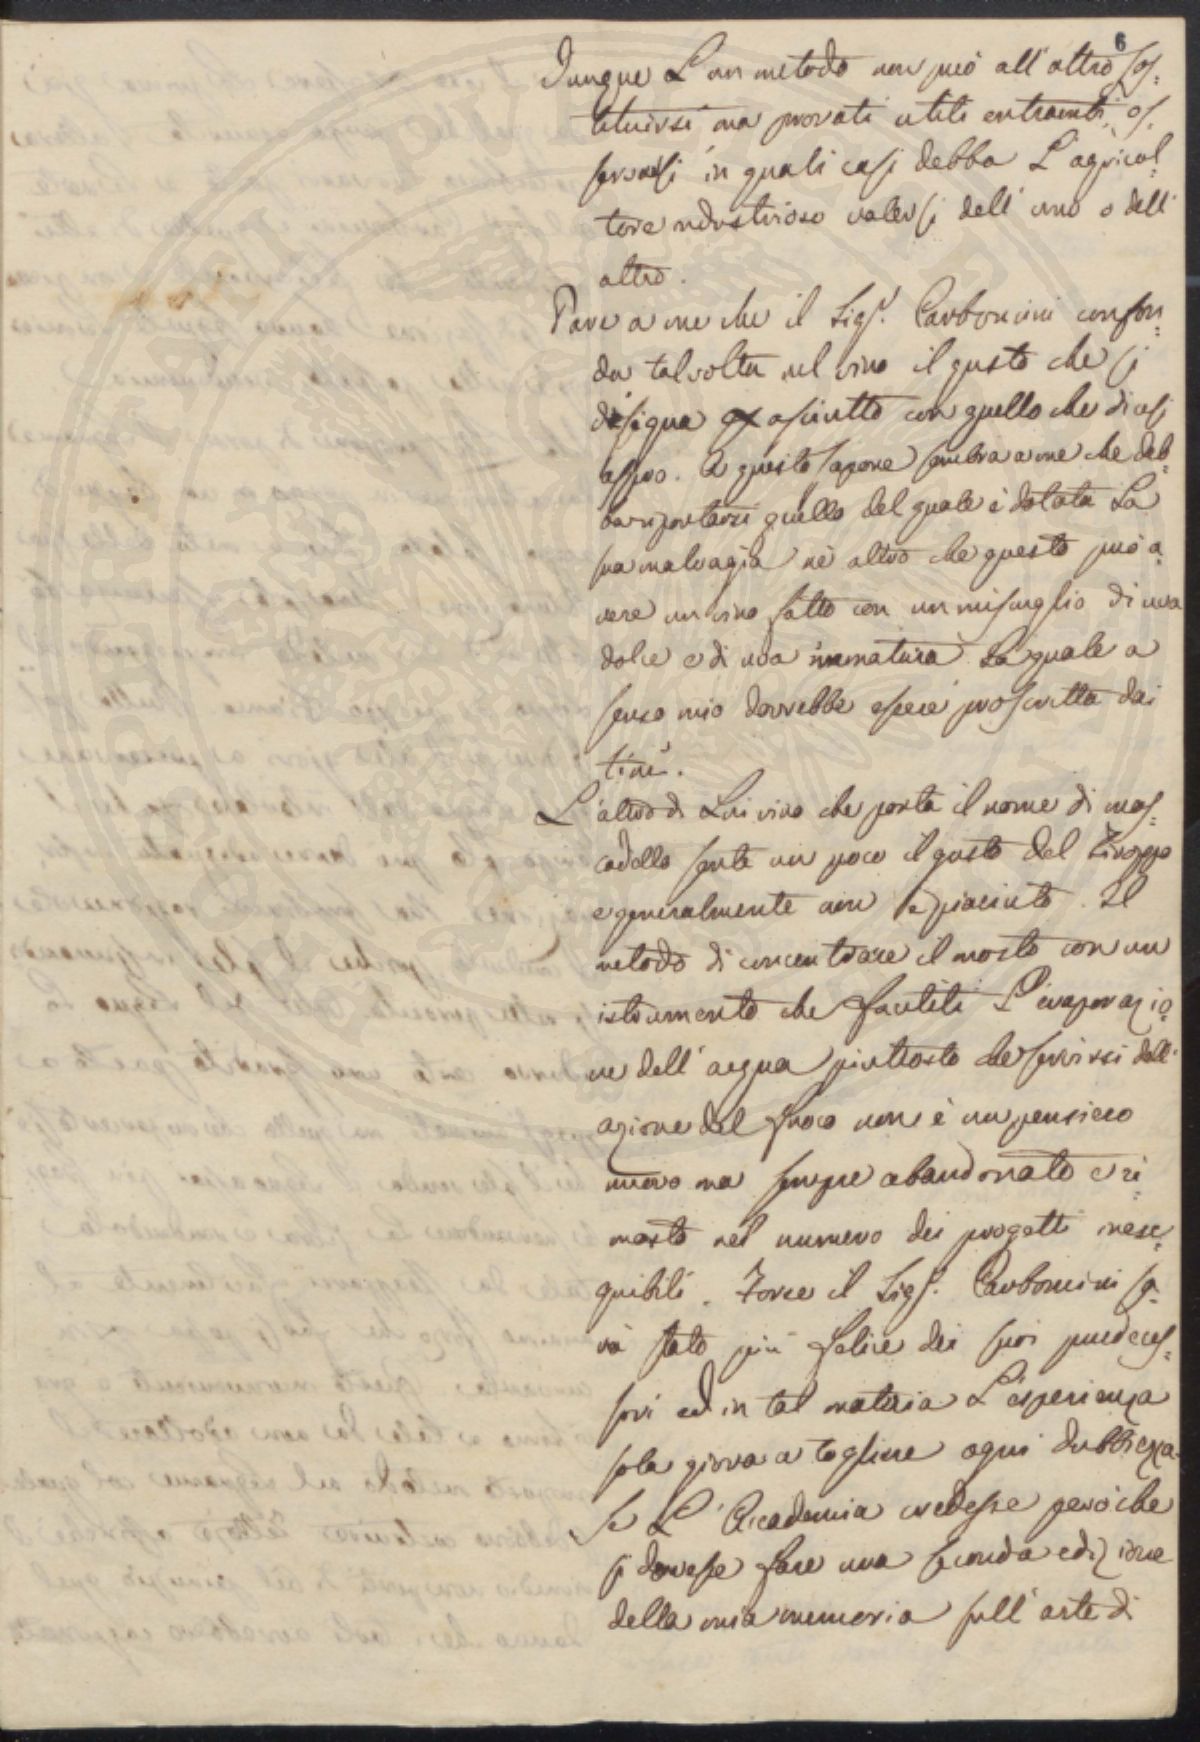 6
Dunque L'un metodo non può all'altro sos=
tituirsi, ma provati utili entrambi, os=
servarsi in quali casi debba L'agricol=
tore industrioso valersi dell'uno o dell'
altro.
Pare a me che il Sigr. Carboncini confon=
da talvolta nel vino il gusto che si
disegna asciutto con quello che dicesi
aspro. A questo sapore sembra a me che deb=
ba riportarsi quello del quale è dotata La
sua malvagia nè altro che questo può a=
vere un vino fatto con un miscuglio di uva
dolce e di uva immatura La quale a
senso mio dovrebbe essere proscritta dai
tini.
L'altro di Lui vino che porta il nome di mos=
cadello sente un poco il gusto del Siroppo
e generalmente non è piaciuto. Il
metodo di concentrare il mosto con un
istrumento che faciliti L'evaporazio=
ne dell'acqua piuttosto che servirsi dell'
azione del fuoco non è un pensiero
nuovo ma sempre abandonato e ri=
masto nel numero dei progetti inese=
guibili. Forse il Sigr. Carboncini sa=
rà stato più felice dei suoi predeces=
sori ed in tal materia L'esperienza
sola giova a togliere ogni dubbiezza.
Se L'Accademia credesse però che
si dovesse fare una seconda edizione
della mia memoria sull'arte di